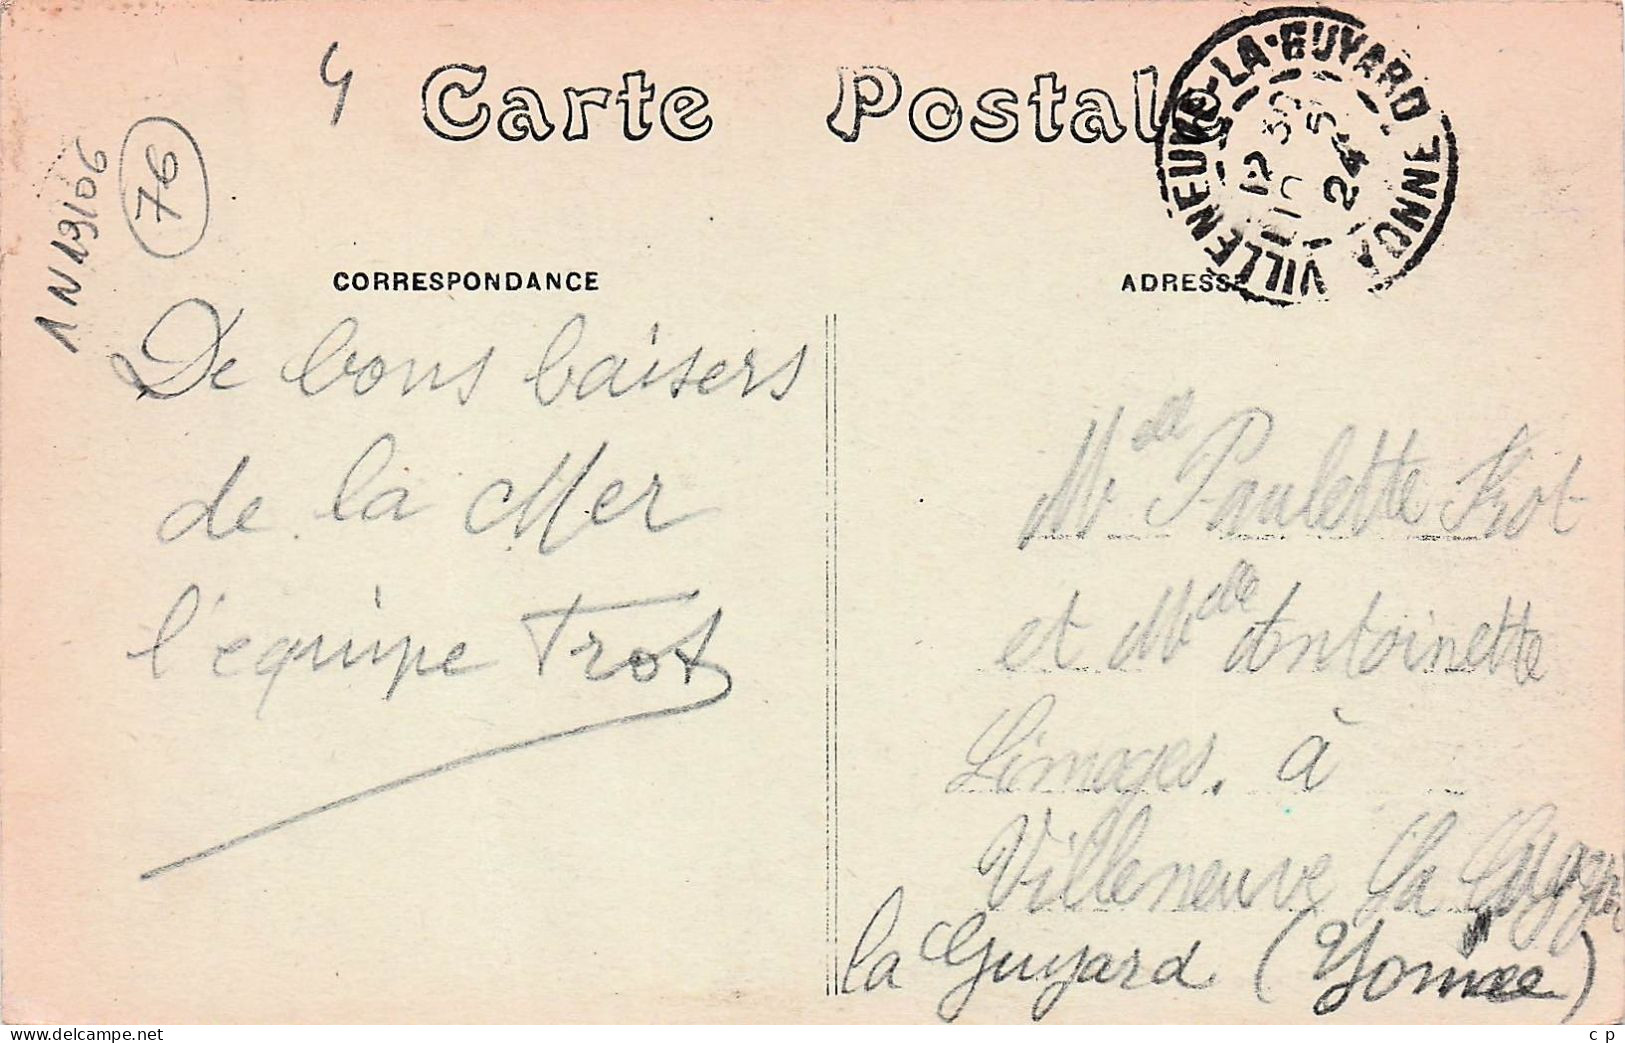 4
Carte Postale
VILLENEUVE-LA-GUYARD YONNE
12 30
10
24
1N19106
76
CORRESPONDANCE
ADRESSE
De bons baisers
de la Mer
l'equipe Trot
Mlle Paulette Trot
et Mlle Antoinette
Limoges. à
Villeneuve la
la Guyard (Yonne)
c p